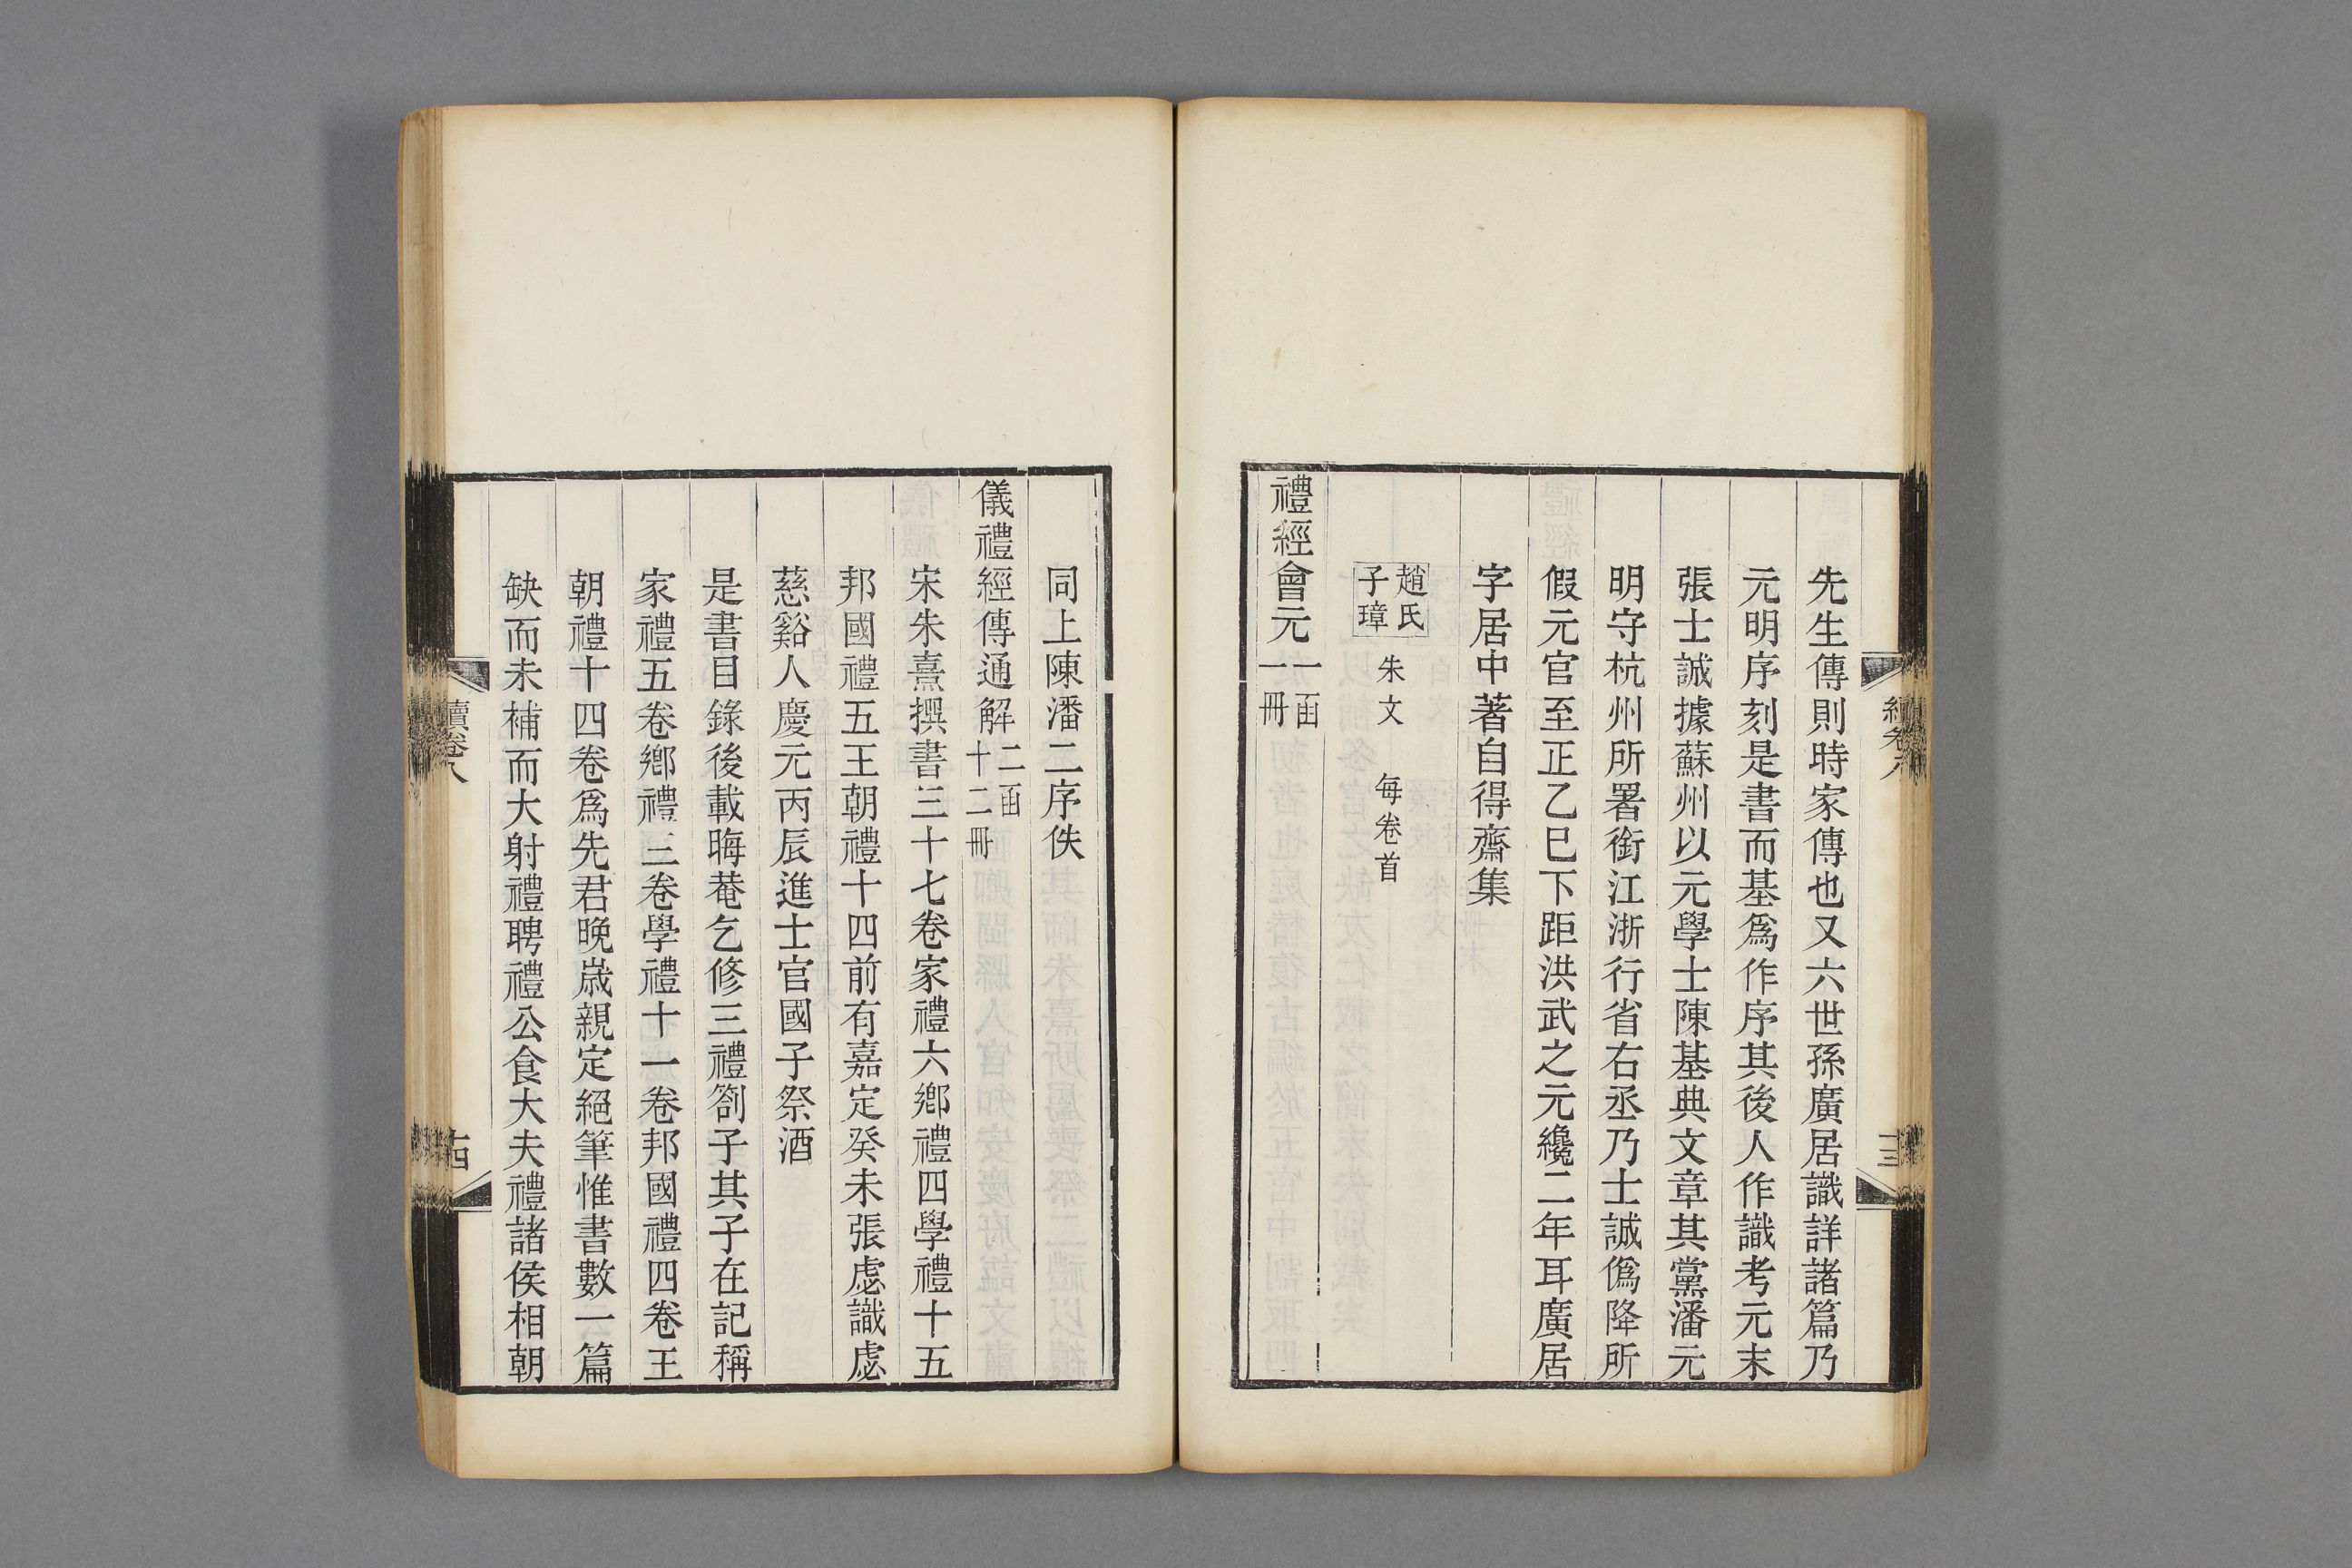 先生傳則時家傳也又六世孫廣居識詳諸篇乃
元明序刻是書而基爲作序其後人作識考元末
張士誠據蘇州以元學士陳基典文章其黨潘元
明守杭州所署銜江浙行省右丞乃士誠僞降所
假元官至正乙巳下距洪武之元纔二年耳廣居
字居中著自得齋集
趙氏
子璋
朱文 每卷首
禮經會元
一函
一冊
同上陳潘二序佚
儀禮經傳通解
二函
十二冊
宋朱熹撰書三十七卷家禮六鄉禮四學禮十五
邦國禮五王朝禮十四前有嘉定癸未張虙識虙
慈谿人慶元丙辰進士官國子祭酒
是書目錄後載晦菴乞修三禮劄子其子在記稱
家禮五卷鄉禮三卷學禮十一卷邦國禮四卷王
朝禮十四卷爲先君晚歲親定絕筆惟書數一篇
缺而未補而大射禮聘禮公食大夫禮諸侯相朝
續卷八
十四